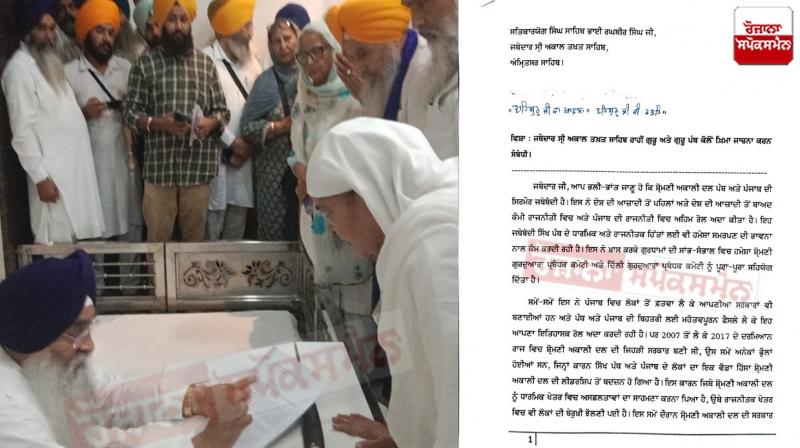 ਰੋਜ਼ਾਨਾ
ਸਪੋਕਸਮੈਨ
ਸਤਿਕਾਰਯੋਗ ਸਿੰਘ ਸਾਹਿਬ ਭਾਈ ਰਘਬੀਰ ਸਿੰਘ ਜੀ,
ਜਥੇਦਾਰ ਸ੍ਰੀ ਅਕਾਲ ਤਖ਼ਤ ਸਾਹਿਬ,
ਅੰਮ੍ਰਿਤਸਰ ਸਾਹਿਬ।
ਵਾਹਿਗੁਰੂ ਜੀ ਕਾ ਖਾਲਸਾ ਵਾਹਿਗੁਰੂ ਜੀ ਕੀ ਫਤਹਿ
ਵਿਸ਼ਾ : ਜਥੇਦਾਰ ਸ੍ਰੀ ਅਕਾਲ ਤਖ਼ਤ ਸਾਹਿਬ ਰਾਹੀਂ ਗੁਰੂ ਅਤੇ ਗੁਰੂ ਪੰਥ ਕੋਲੋਂ ਖ਼ਿਮਾ ਜਾਚਨਾ ਕਰਨ
ਸੰਬੰਧੀ।
ਜਥੇਦਾਰ ਜੀ, ਆਪ ਭਲੀ-ਭਾਂਤ ਜਾਣੂ ਹੋ ਕਿ ਸ਼੍ਰੋਮਣੀ ਅਕਾਲੀ ਦਲ ਪੰਥ ਅਤੇ ਪੰਜਾਬ ਦੀ
ਸਿਰਮੌਰ ਜਥੇਬੰਦੀ ਹੈ। ਇਸ ਨੇ ਦੇਸ਼ ਦੀ ਆਜ਼ਾਦੀ ਤੋਂ ਪਹਿਲਾਂ ਅਤੇ ਦੇਸ਼ ਦੀ ਆਜ਼ਾਦੀ ਤੋਂ ਬਾਅਦ
ਕੌਮੀ ਰਾਜਨੀਤੀ ਵਿਚ ਅਤੇ ਪੰਜਾਬ ਦੀ ਰਾਜਨੀਤੀ ਵਿਚ ਅਹਿਮ ਰੋਲ ਅਦਾ ਕੀਤਾ ਹੈ। ਇਹ
ਜਥੇਬੰਦੀ ਸਿੱਖ ਪੰਥ ਦੇ ਧਾਰਮਿਕ ਅਤੇ ਰਾਜਨੀਤਕ ਹਿੱਤਾਂ ਲਈ ਵੀ ਹਮੇਸ਼ਾ ਸਮਰਪਣ ਦੀ ਭਾਵਨਾ
ਨਾਲ ਕੰਮ ਕਰਦੀ ਰਹੀ ਹੈ। ਇਸ ਨੇ ਖ਼ਾਸ ਕਰਕੇ ਗੁਰਧਾਮਾਂ ਦੀ ਸਾਂਭ-ਸੰਭਾਲ ਵਿਚ ਹਮੇਸ਼ਾ ਸ਼੍ਰੋਮਣੀ
ਗੁਰਦੁਆਰਾ ਪ੍ਰਬੰਧਕ ਕਮੇਟੀ ਅਤੇ ਦਿੱਲੀ ਗੁਰਦੁਆਰਾ ਪ੍ਰਬੰਧਕ ਕਮੇਟੀ ਨੂੰ ਪੂਰਾ-ਪੂਰਾ ਸਹਿਯੋਗ
ਦਿੱਤਾ ਹੈ।
ਸਮੇਂ-ਸਮੇਂ ਇਸ ਨੇ ਪੰਜਾਬ ਵਿਚ ਲੋਕਾਂ ਤੋਂ ਫ਼ਤਵਾ ਲੈ ਕੇ ਆਪਣੀਆਂ ਸਰਕਾਰਾਂ ਵੀ
ਬਣਾਈਆਂ ਹਨ ਅਤੇ ਪੰਥ ਅਤੇ ਪੰਜਾਬ ਦੀ ਬਿਹਤਰੀ ਲਈ ਮਹੱਤਵਪੂਰਨ ਫ਼ੈਸਲੇ ਲੈ ਕੇ ਇਹ
ਆਪਣਾ ਇਤਿਹਾਸਕ ਰੋਲ ਅਦਾ ਕਰਦੀ ਰਹੀ ਹੈ। ਪਰ 2007 ਤੋਂ ਲੈ ਕੇ 2017 ਦੇ ਦਰਮਿਆਨ
ਰਾਜ ਵਿਚ ਸ਼੍ਰੋਮਣੀ ਅਕਾਲੀ ਦਲ ਦੀ ਜਿਹੜੀ ਸਰਕਾਰ ਬਣੀ ਸੀ, ਉਸ ਸਮੇਂ ਅਨੇਕਾਂ ਭੁੱਲਾਂ
ਹੋਈਆਂ ਸਨ, ਜਿਨ੍ਹਾਂ ਕਾਰਨ ਸਿੱਖ ਪੰਥ ਅਤੇ ਪੰਜਾਬ ਦੇ ਲੋਕਾਂ ਦਾ ਇਕ ਵੱਡਾ ਹਿੱਸਾ ਸ਼੍ਰੋਮਣੀ
ਅਕਾਲੀ ਦਲ ਦੀ ਲੀਡਰਸ਼ਿਪ ਤੋਂ ਬਦਜ਼ਨ ਹੋ ਗਿਆ ਹੈ। ਇਸ ਕਾਰਨ ਜਿਥੇ ਸ਼੍ਰੋਮਣੀ ਅਕਾਲੀ ਦਲ
ਨੂੰ ਧਾਰਮਿਕ ਖੇਤਰ ਵਿਚ ਅਸਫਲਤਾਵਾਂ ਦਾ ਸਾਹਮਣਾ ਕਰਨਾ ਪਿਆ ਹੈ, ਉਥੇ ਰਾਜਨੀਤਕ ਖੇਤਰ
ਵਿਚ ਵੀ ਲੋਕਾਂ ਦੀ ਬੇਰੁਖ਼ੀ ਝੱਲਣੀ ਪਈ ਹੈ। ਇਸ ਸਮੇਂ ਦੌਰਾਨ ਸ਼੍ਰੋਮਣੀ ਅਕਾਲੀ ਦਲ ਦੀ ਸਰਕਾਰ
1
ਰੋਜ਼ਾਨਾ ਸਪੋਕਸਮੈਨ
ਰੋਜ਼ਾਨਾ ਸਪੋਕਸਮੈਨ